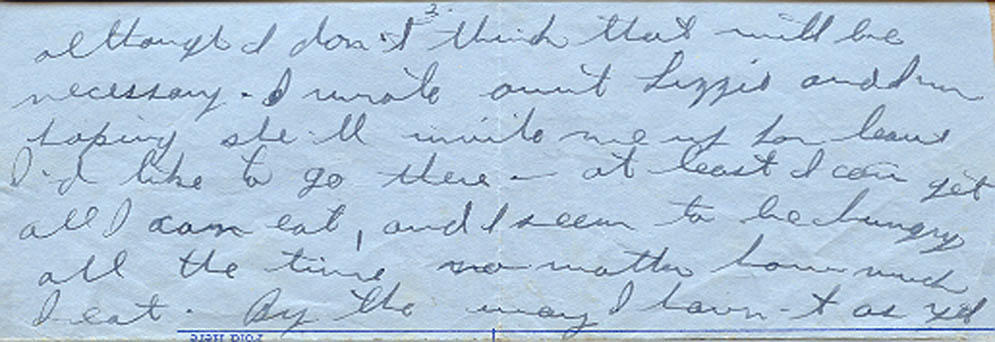 3.
although I don't think that will be
necessary. I wrote aunt Lizzie and I'm
hoping she'll invite me up for leave
I'd like to go there - at least I can get
all I can eat, and I seem to be hungry
all the time no matter how much
I eat. By the way I haven't as yet
Fold Here